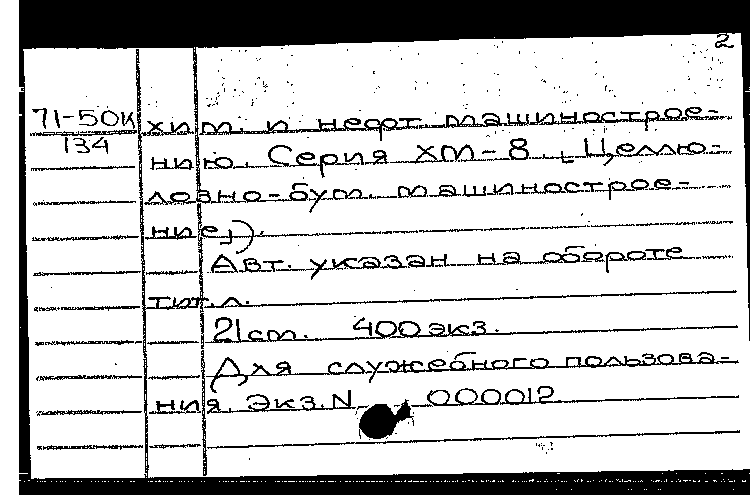 2
71-50к хим. и нефт. машинострое-
134
нию. Серия ХМ-8 [Целлю-
лозно-бум. машинострое-
ние]).
Авт. указан на обороте
тит. л.
21 cm. 400 экз.
Для служебного пользова-
ния. Экз. N 000012